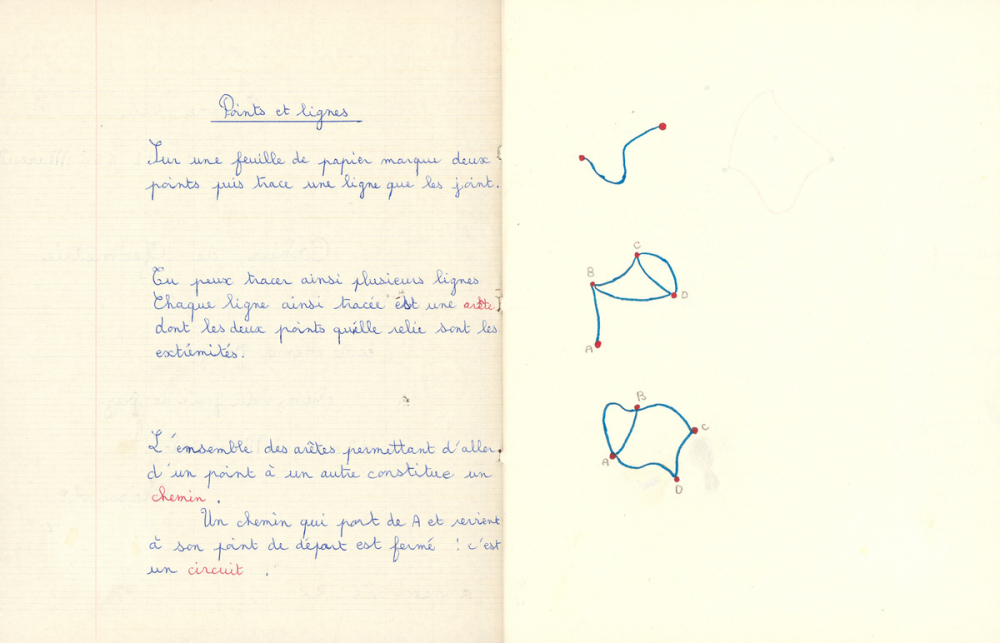 Points et lignes
Sur une feuille de papier marque deux
points puis trace une ligne que les joint.
Tu peux tracer ainsi plusieurs lignes
Chaque ligne ainsi tracée est une arête
dont les deux points quélle relie sont les
extrémités.
L'énsemble des arêtes permettant d'aller
d'un point à un autre constitue un
chemin.
Un chemin qui part de A et revient
à son point de départ est fermé ! c'est
un circuit.
C
B
D
A
B
C
A
D